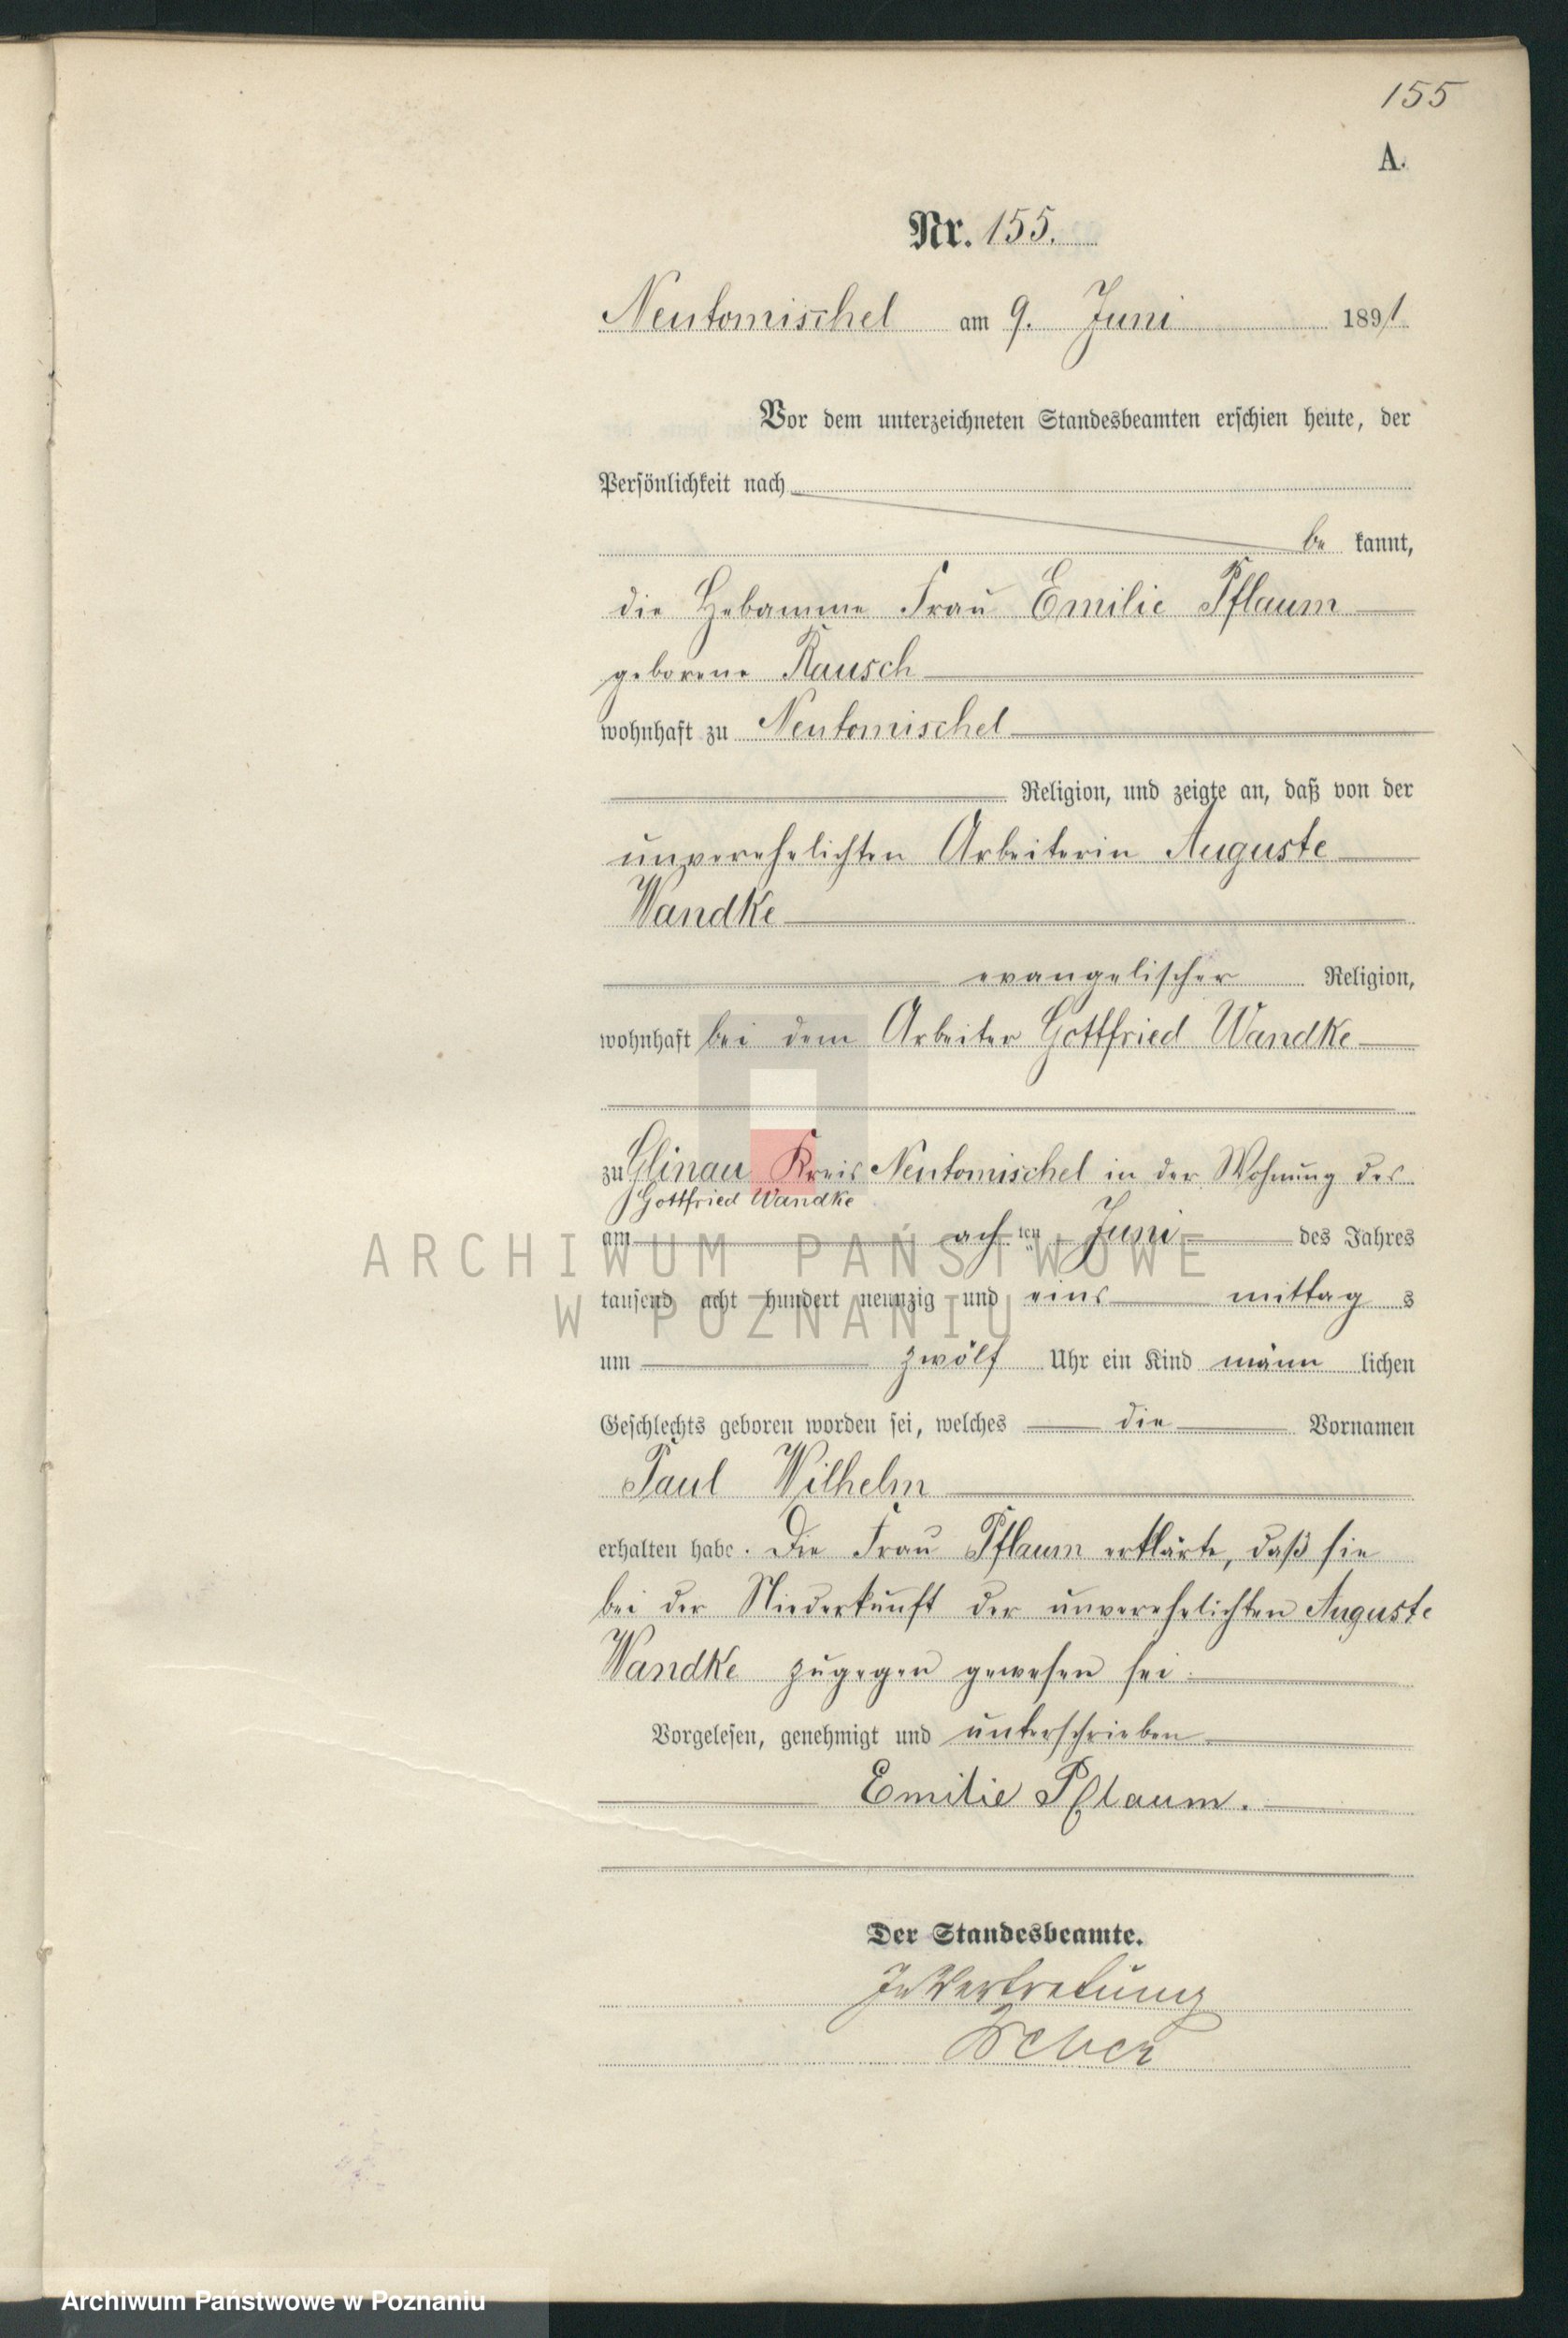 155
A.
Nr. 155.
Neutomischel am 9. Juni 1891
Vor dem unterzeichneten Standesbeamten erschien heute, der
Persönlichkeit nach
be kannt,
die Hebamme Frau Emilie Pflaum
geborene Rausch
wohnhaft zu Neutomischel
Religion, und zeigte an, daß von der
unverehelichten Arbeiterin Auguste
Wandke
evangelischer Religion,
wohnhaft bei dem Arbeiter Gottfried Wandke
zu Glinau Kreis Neutomischel in der Wohnung des
Gottfried Wandke
am ach ten Juni des Jahres
ARCHIWUM PAŃSTWOWE
tausend acht hundert neunzig und eins mittag s
W POZNANIU
um zwölf Uhr ein Kind männ lichen
Geschlechts geboren worden sei, welches die Vornamen
Paul Wilhelm
erhalten habe. Die Frau Pflaum erklärte, daß sie
bei der Niederkunft der unverehelichten Auguste
Wandke zugegen gewesen sei.
Vorgelesen, genehmigt und unterschrieben
Emilie Pflaum.
Der Standesbeamte.
In Vertretung
Archiwum Państwowe w Poznaniu